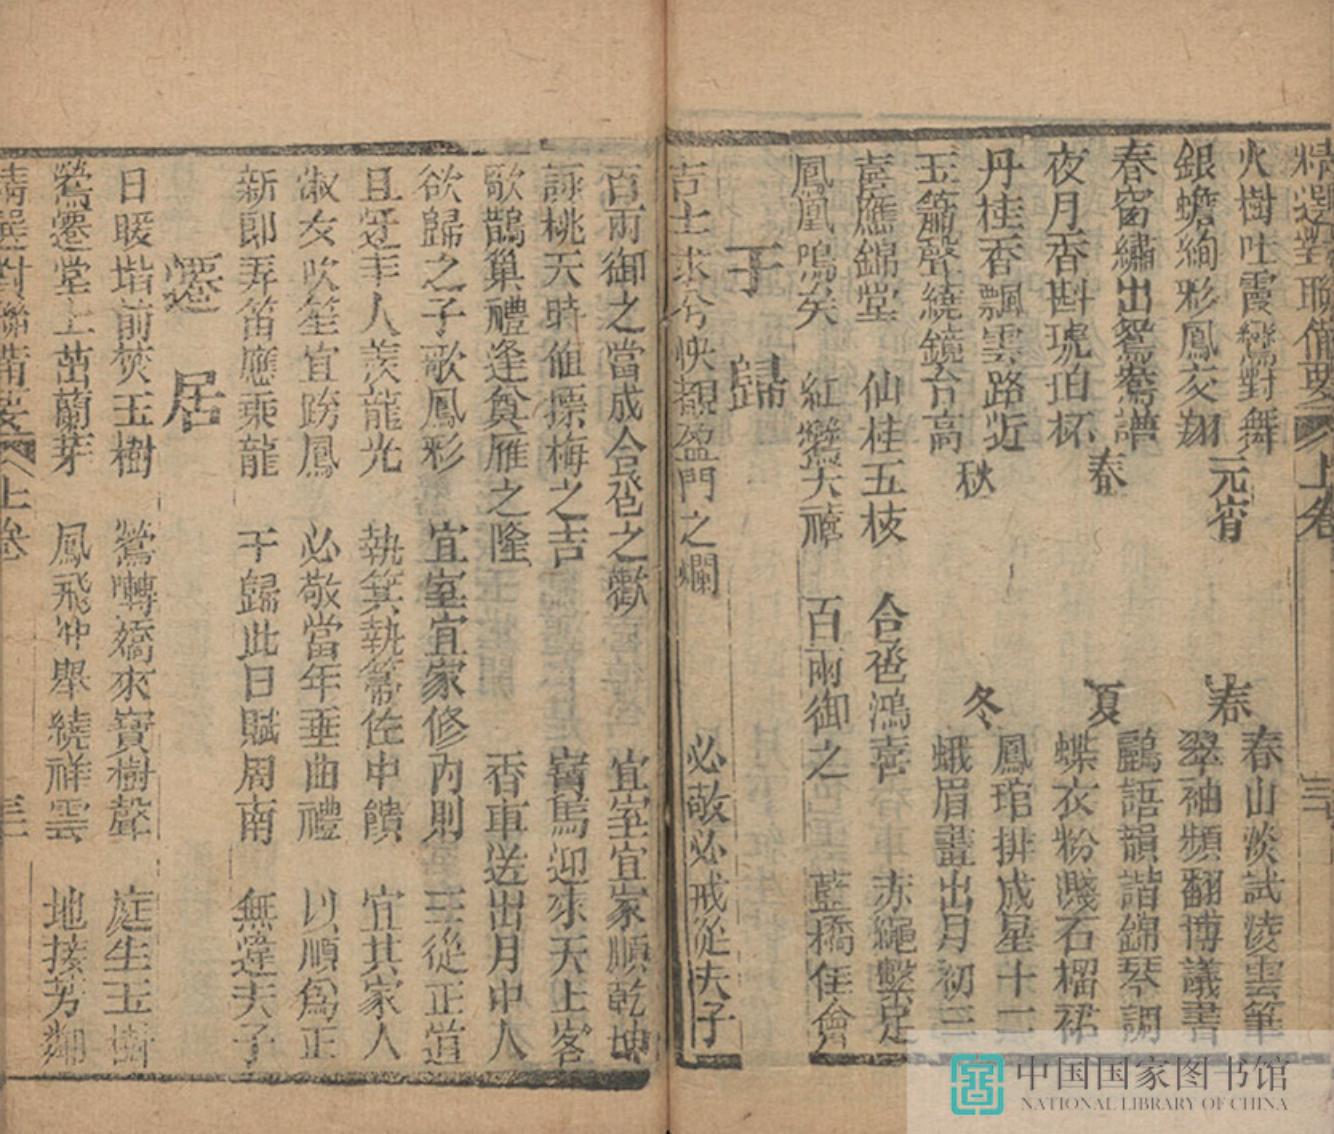 精選對聯備要 上卷 三
火樹吐霞鸞對舞 元宵 春 春山淡試凌雲筆
銀蟾絢彩鳳交翔 翠袖頻翻博議書
春窗繡出鴛鴦譜 春 夏 鸝語韻諧錦琴調
夜月香斟琥珀杯 蝶衣粉濺石榴裙
丹桂香飄雲路近 秋 冬 鳳琯排成星十二
玉簫聲繞鏡台高 蛾眉畫出月初三
喜應錦堂 仙桂五枝 合卺鴻喜 赤繩繫足
鳳凰鳴矣 紅鸞天禧 百兩御之 藍橋佳會
于歸
吉士求兮怏覩盈門之爛 必敬必戒從夫子
百兩御之當成合卺之歡 宜室宜家順乾坤
詠桃夭時值摽梅之吉 寶馬迎來天上客
歌鵲巢禮逢奠雁之隆 香車送出月中人
欲歸之子歌鳳彩 宜室宜家修內則 三從正道
且迓丰人羨龍光 執箕執箒佐中饋 宜其家人
淑女吹笙宜跨鳳 必敬當年垂曲禮 以順為正
新郎弄笛應乘龍 于歸此日賦周南 無違夫子
遷居
日暖堦前茭玉樹 鶯囀嬌來寶樹聲 庭生玉樹
鶯遷堂上茁蘭芽 鳳飛冲舉繞祥雲 地接芳鄰
精選對聯備要 上卷 三
中国国家图书馆
NATIONAL LIBRARY OF CHINA